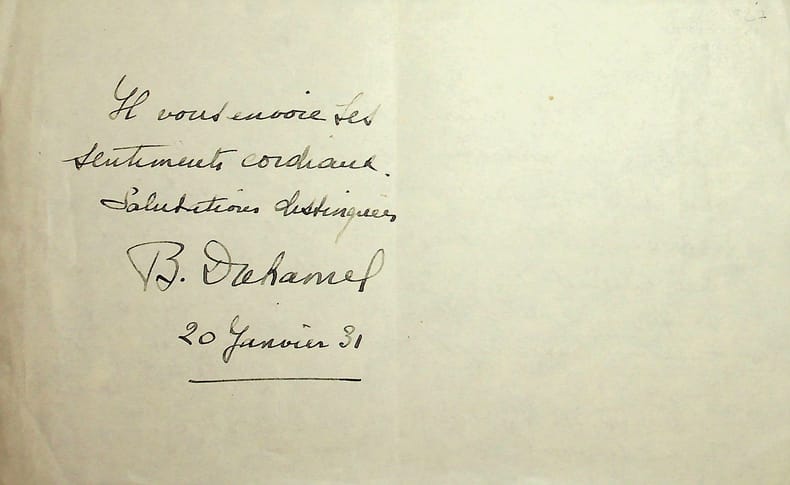 Il vous envoie ses
sentiments cordiaux.
Salutations distinguées
B. Duhamel
20 Janvier 31